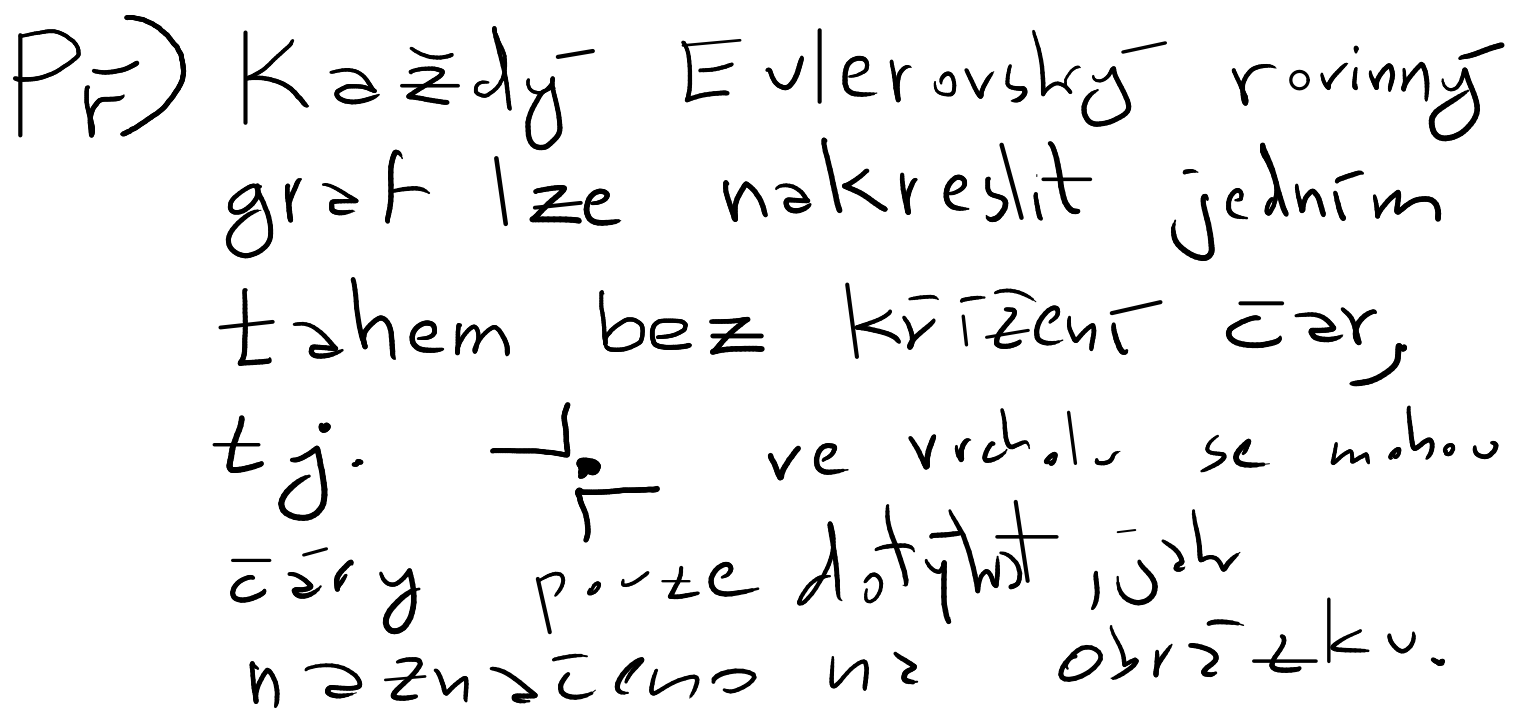 Př) Každý Eulerovský rovinný
graf lze nakreslit jedním
tahem bez křížení čar,
tj. ve vrcholu se mohou
čáry pouze dotýkat, jak
naznačeno na obrázku.